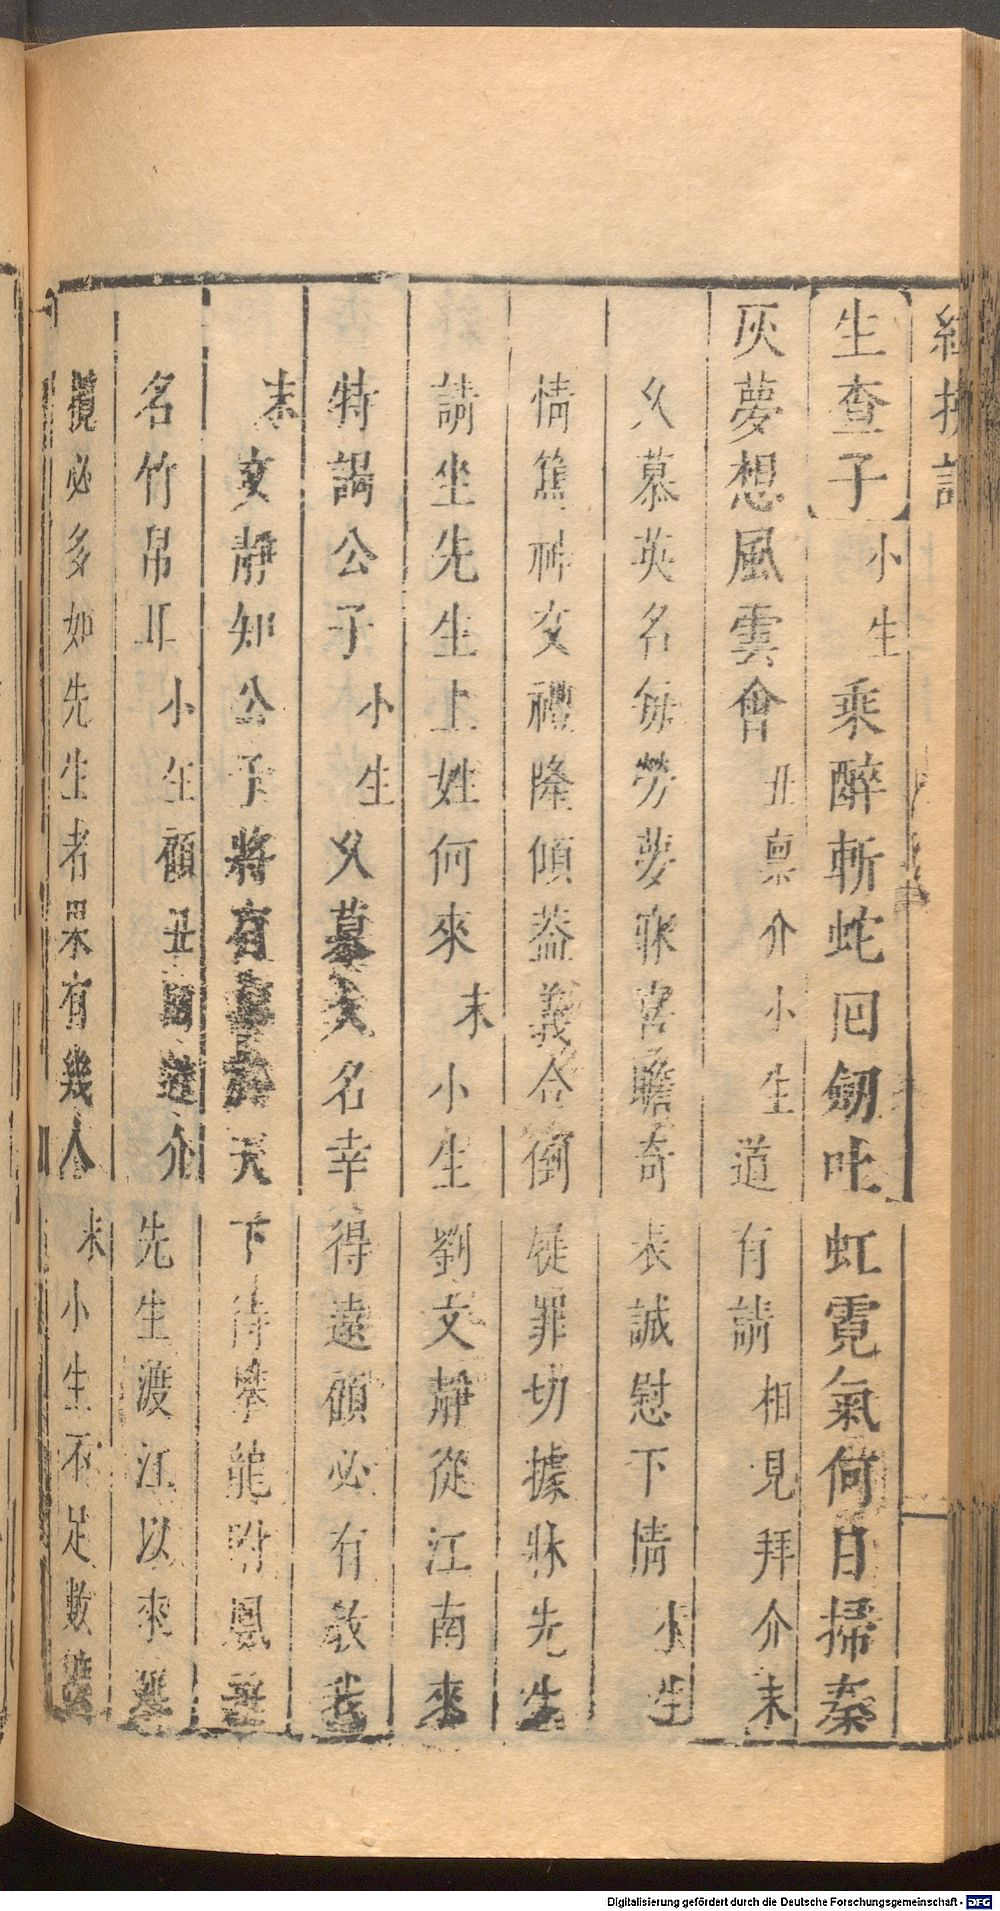 紅拂記
生查子 小生 乘醉斬蛇回劒吐虹霓氣何日掃秦
灰夢想風雲會 丑稟介小生 道有請 相見拜介末
久慕英名每勞夢寐宮瞻奇表誠慰下情 小生
情篤神交禮隆傾葢義合倒屣罪切據牀先生
請坐先生上姓何來 末 小生劉文靜從江南來
特謁公子 小生 久慕大名幸得遠顧必有敎我
末 文靜知公子將有天下待攀龍附鳳
名竹帛耳 小生顧丑 道介 先生渡江以來
攬必多如先生者果有幾人 末 小生不足數
Digitalisierung gefördert durch die Deutsche Forschungsgemeinschaft - DFG